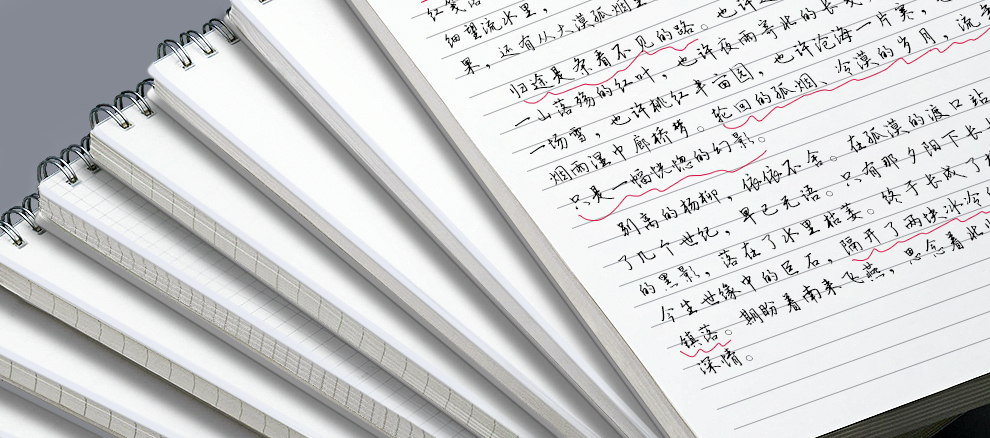 红笺语
细望流水里，
果，还有从大漠孤烟里
归途是望着不见的路。也许
一山落殇的红叶，也许夜雨寄北的长
一场雪，也许桃红半亩园，也许沧海一片美，
烟雨湿中廊桥梦。轮回的孤烟、冷漠的岁月，流
只是一幅恍惚的幻影。
别离的杨柳，依依不舍。在孤漠的渡口站
了几个世纪，早已无语。只有那夕阳下长
的黑影，落在了水里枯萎。终于长成了
今生世缘中的巨石，隔开了两块冰冷
镇落。期盼着南来飞燕，思念着北
深情。